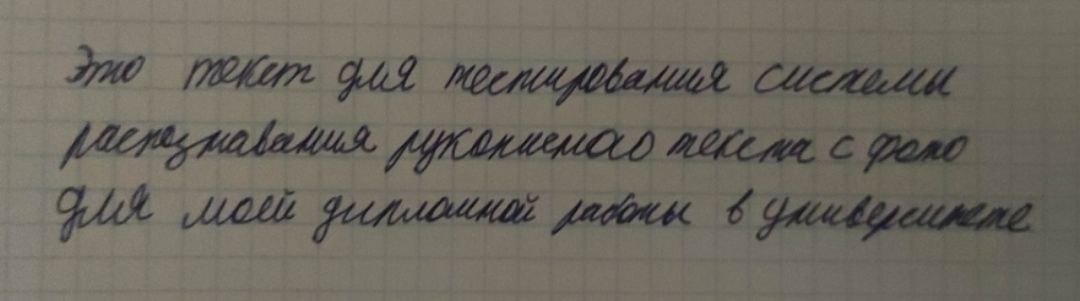 Это текст для тестирования системы
распознавания рукописного текста с фото
для моей дипломной работы в университете